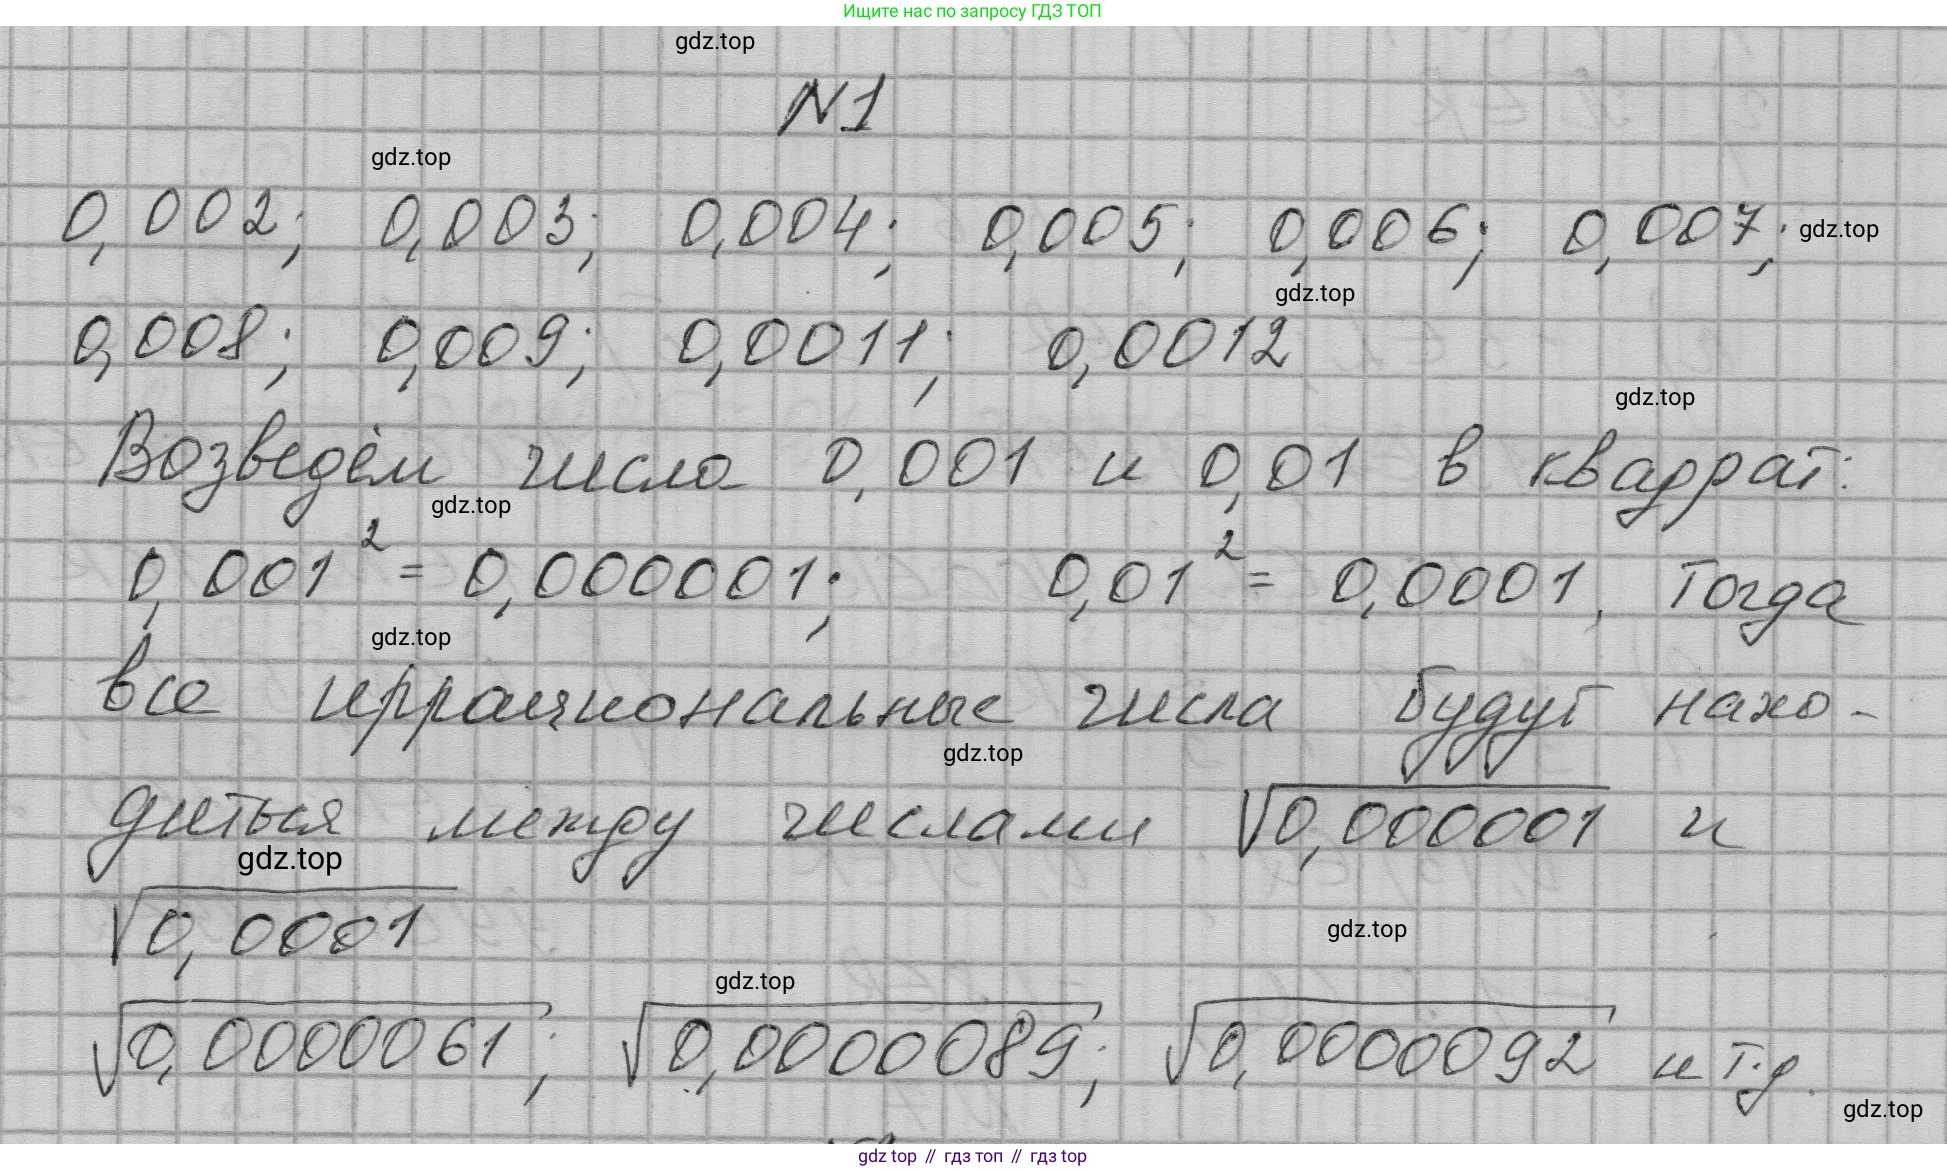 Ищите нас по запросу ГДЗ ТОП
gdz.top
N1
gdz.top
0,002; 0,003; 0,004; 0,005; 0,006; 0,007;
gdz.top
gdz.top
0,008; 0,009; 0,0011; 0,0012
gdz.top
Возведём числа 0,001 и 0,01 в квадрат:
gdz.top
0,001² = 0,000001; 0,01² = 0,0001. Тогда
gdz.top
все иррациональные числа будут нахо-
gdz.top
диться между числами √0,000001 и
gdz.top
√0,0001
gdz.top
gdz.top
√0,0000061; √0,0000089; √0,0000092 и т.д.
gdz.top
gdz top // гдз топ // гдз top